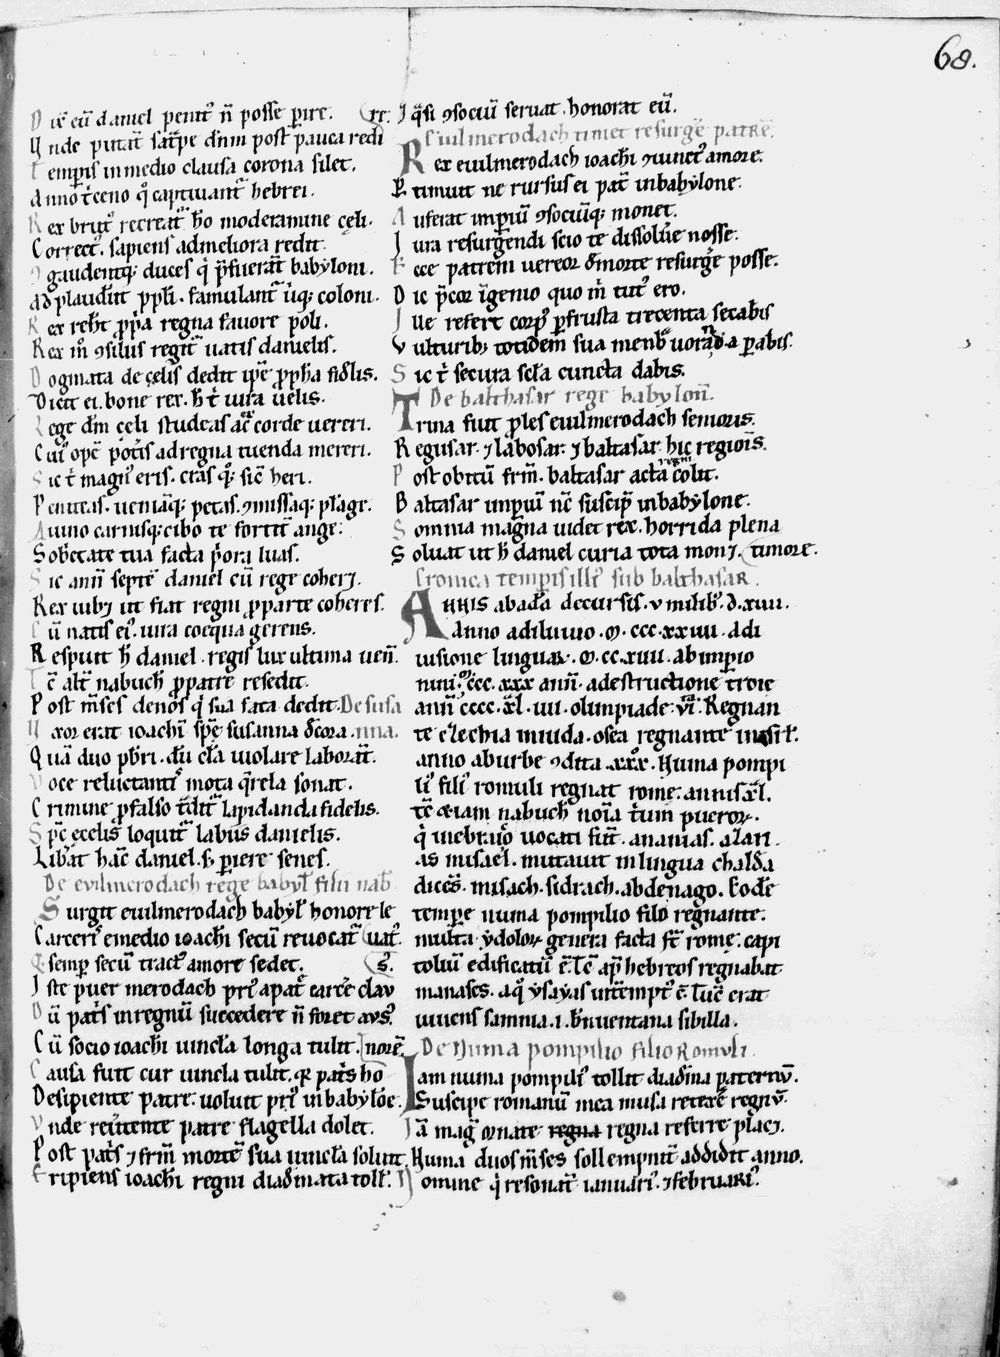 68.
Dic̄ eū daniel penit᷒ n̄ posse ꝑire.
Vnde putat̄ sat̄pe dn̄m post pauca redi
Temꝑis in medio clausa corona silet.
Anno t̄ceno q̄ captiuant̄ hebrei.
Rex brut᷒ recreat̄ h̄o moderamine cęli.
Correct᷒. sapiens ad meliora redit.
ꝯgaudentqꝫ duces q̇ p̄fuerāt babyloni.
Rex reh̄t ꝓp̄a regna fauore poli.
Rex m̊ ꝯsilus regit᷑ uatis danielis.
Dogmata de cęlis dedit ip̄e ꝓph̄a fid̄lis.
Dicit ei. bone rex. h̄ t̄ iura uelis.
Rege dn̄m cęli studeas ac̄ corde uereri.
Sic t̄ magn᷒ eris. cras qꝫ. sic̄ heri.
Peniteas. ueniāqꝫ petas. ꝯmissaqꝫ plāge.
Sob̄etate tua facta p̄ora luas.
Sic ann̄ septē daniel cū rege coheꝫ.
Rex iubꝫ ut fiat regni ꝓ parte coheres.
Cū natis ei᷒. iura coequa gerens.
Respuit h̄ daniel. regis lux ultima uen̄.
Tc̄ alt̄ nabuch̄ ꝓ patre resedit.
Post m̄ses denos q̇ sua fata dedit. De susa
Vxor erat ioachī spē susanna d̄cora. nna.
Quā duo pb̄ri. dū cl̄a uiolare laborāt.
Voce reluctantis mota q̄rela sonat.
Crimine ꝓ falso t̄dit᷑ lapidanda fidelis.
Spc̄ ę celis loquit᷑ labiis danielis.
Lib̄at hāc daniel. s; ꝑiere senes.
De evilmerodach rege babyl̄ filii nab
Surgit euilmerodach babyl̄ honore le
Carceris e medio ioachī secū reuocat᷑ uat᷒.
Et semꝑ secū tract᷒ amore sedet.
Iste puer merodach pris a pat̄ carc̄e clau
Dū pat̄s in regnū succedere n̄ foret aus᷒.
Cū socio ioachī uincla longa tulit. nore.
Causa fuit cur uincla tulit. qꝛ pat̄s ho
Desipiente patre. uoluit pri᷒ in babylōe.
Vnde reūtente patre flagella dolet.
Post pat̄s ⁊ frīs mortē sua uincla soluit.
Eripiens ioachī regni diad̄mata tollit.
I q̄si ꝯsociū seruat. honorat eū.
Euilmerodach timet resurḡe patrē.
Rex euilmerodach ioachī ꝯiunct᷒ amore.
Et timuit ne rursus ei pat̄ in babylone.
Auferat imperiū ꝯsociūqꝫ monet.
Iura resurgendi scio te dissolue nosse.
Ecce patrem uereor d̄ morte resurḡe posse.
Dic p̄cor īgenio quo m̄ tut᷒ ero.
Ille refert corp᷒ ꝑ frusta trecenta secabis
Vulturibꝫ totidem sua mēbra uoranda ꝑabis.
Sic t̄ secura sc̄la cuncta dabis.
De balthasar rege babylon̄.
Trina fuit ꝓles euilmerodach senioris.
Regusar. ⁊ labosar. ⁊ baltasar. hic regionis.
Post obitū frm̄. baltasar acta regni colit.
Baltasar imperiū nc̄ suscip̄ in babylone.
Somnia magna uidet rex. horrida plena
Soluat ut h̄ daniel curia tota monꝫ. timore.
Cronica temꝑis illi᷒ sub balthasar.
ANNIS ab adā decursis. v milib᷒. d. xuii.
Anno a diluuio. m. ccc. xxuii. a di
uisione linguaꝝ. m. cc. xiiii. ab imperio
nini. ccc. xxx ann̄. a destructione troie
ann̄ cccc. xl. iiii. olimpiade. ui. Regnan
te ezechia in iuda. osea regnante in isrl̄.
anno ab urbe ꝯdita. xxx. Numa pompi
li᷒ fili᷒ romuli regnat rome. annis xl.
Tc̄ etiam nabuch̄ noīa t̄um pueroꝝ.
q̇ in ebraico uocati fuer̄. ananias. azari
as misael. mutauit in lingua chald̄a
dices. misach. sidrach. abdenago. Eod̄e
temꝑe numa pompilio filio regnante.
multa ydoloꝝ genera facta st̄ rome. capi
tolium edificatū ē. Tc̄ ap̄ hebreos regnabat
manases. a q° ysayas int̄empt᷒ ē. Tūc erat
uiuens samia. i. b̄nuentana sibilla.
De Numa pompilio filio Romuli.
Iam numa pompili᷒ tollit diad̄ma paternū.
Suscipe romanū mea musa retexe regnū.
Iā mag̊ ornate regna regna referre placꝫ.
Numa duos m̄ses sollempnit̄ addidit anno.
Nomine q̇ resonat̄ ianuari᷒. ⁊ februari᷒.